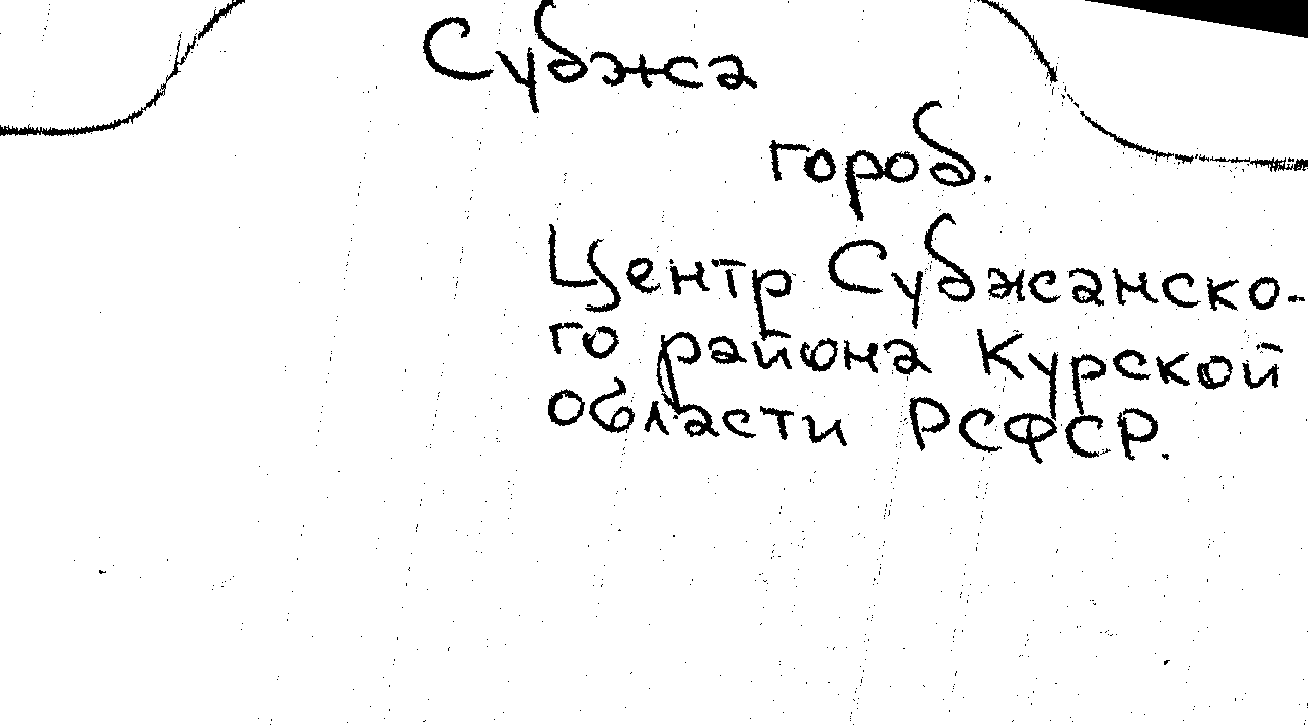 Суджа
город.
Центр Суджанско-
го района Курской
области РСФСР.